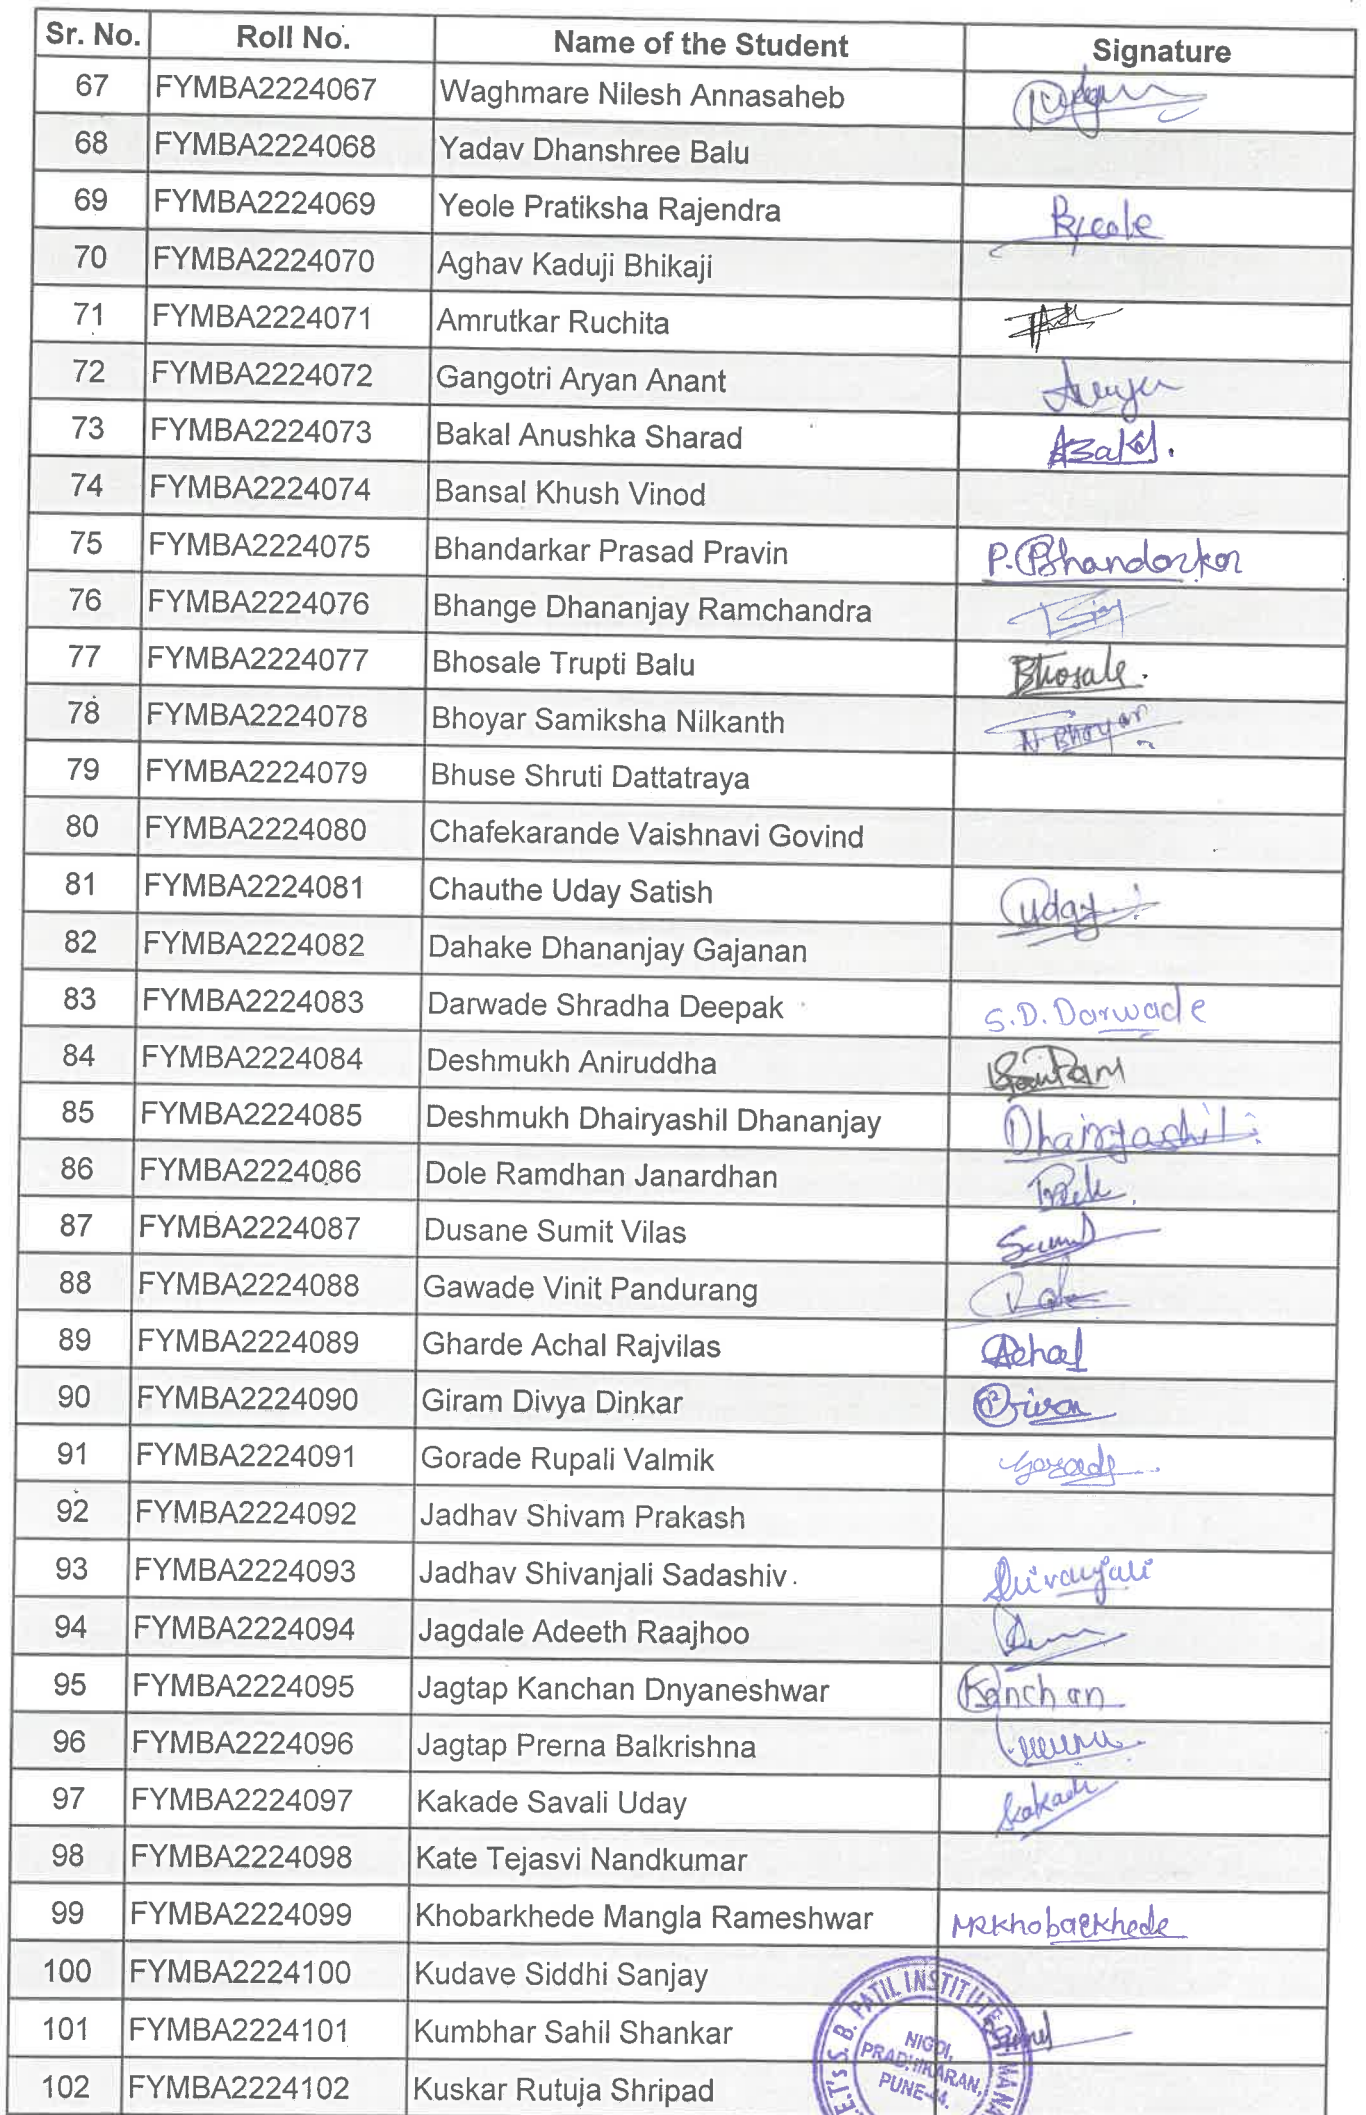 Sr. No. Roll No. Name of the Student Signature
67 FYMBA2224067 Waghmare Nilesh Annasaheb
68 FYMBA2224068 Yadav Dhanshree Balu
69 FYMBA2224069 Yeole Pratiksha Rajendra
70 FYMBA2224070 Aghav Kaduji Bhikaji
71 FYMBA2224071 Amrutkar Ruchita
72 FYMBA2224072 Gangotri Aryan Anant
73 FYMBA2224073 Bakal Anushka Sharad
74 FYMBA2224074 Bansal Khush Vinod
75 FYMBA2224075 Bhandarkar Prasad Pravin P. Bhandarkar
76 FYMBA2224076 Bhange Dhananjay Ramchandra
77 FYMBA2224077 Bhosale Trupti Balu Bhosale.
78 FYMBA2224078 Bhoyar Samiksha Nilkanth
79 FYMBA2224079 Bhuse Shruti Dattatraya
80 FYMBA2224080 Chafekarande Vaishnavi Govind
81 FYMBA2224081 Chauthe Uday Satish Uday
82 FYMBA2224082 Dahake Dhananjay Gajanan
83 FYMBA2224083 Darwade Shradha Deepak S.D. Darwade
84 FYMBA2224084 Deshmukh Aniruddha
85 FYMBA2224085 Deshmukh Dhairyashil Dhananjay Dhairyashil
86 FYMBA2224086 Dole Ramdhan Janardhan
87 FYMBA2224087 Dusane Sumit Vilas
88 FYMBA2224088 Gawade Vinit Pandurang
89 FYMBA2224089 Gharde Achal Rajvilas Achal
90 FYMBA2224090 Giram Divya Dinkar
91 FYMBA2224091 Gorade Rupali Valmik
92 FYMBA2224092 Jadhav Shivam Prakash
93 FYMBA2224093 Jadhav Shivanjali Sadashiv Shivanjali
94 FYMBA2224094 Jagdale Adeeth Raajhoo
95 FYMBA2224095 Jagtap Kanchan Dnyaneshwar Kanchan
96 FYMBA2224096 Jagtap Prerna Balkrishna
97 FYMBA2224097 Kakade Savali Uday
98 FYMBA2224098 Kate Tejasvi Nandkumar
99 FYMBA2224099 Khobarkhede Mangla Rameshwar MRKhobarkhede
100 FYMBA2224100 Kudave Siddhi Sanjay
101 FYMBA2224101 Kumbhar Sahil Shankar
102 FYMBA2224102 Kuskar Rutuja Shripad
S. B. PATIL INSTITUTE
NIGDI,
PRADHIKARAN,